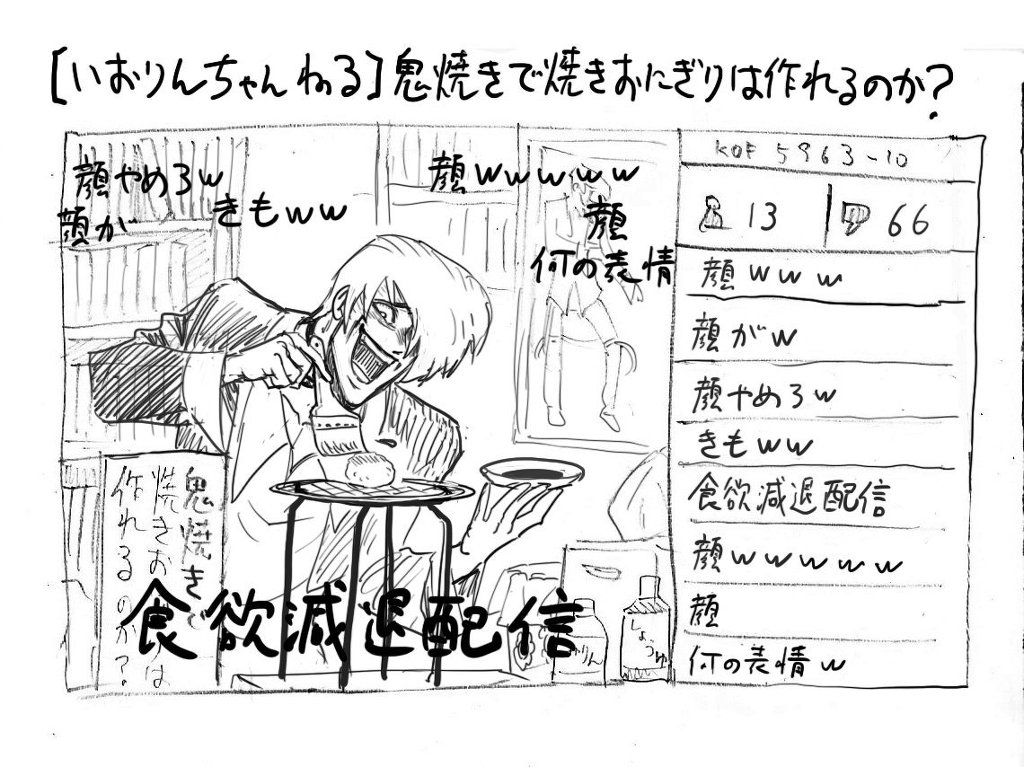 [いおりんちゃんねる]鬼焼きで焼きおにぎりは作れるのか?
顔やめろw
顔が
きもww
顔wwwww
顔
何の表情
鬼焼きで
焼きお
は
作れるのか?
食欲減退配信
りん
しょうゆ
KOF 5963-10
13
66
顔www
顔がw
顔やめろw
きもww
食欲減退配信
顔wwwww
顔
何の表情w